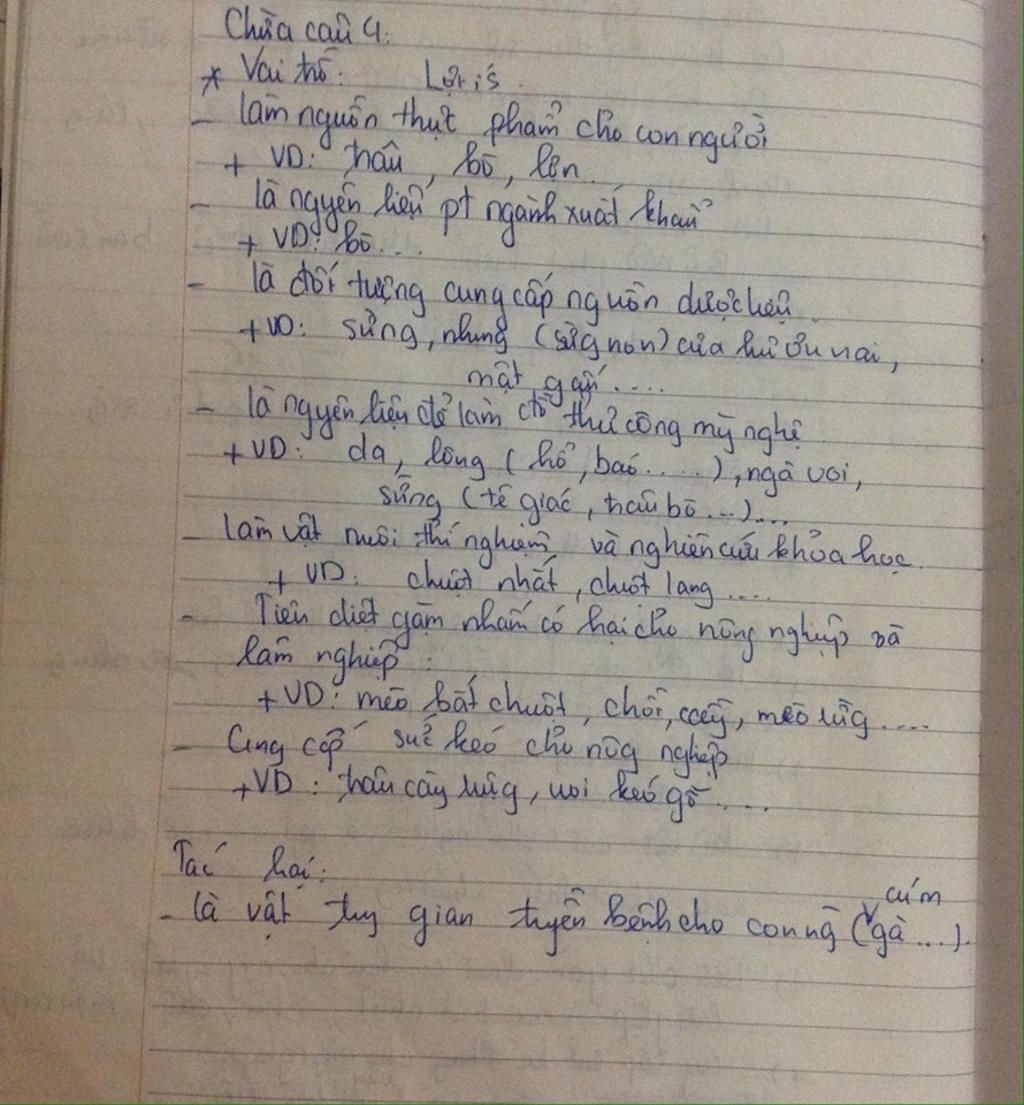 Chữa câu 4:
* Vai trò: Lợi ís
- làm nguồn thực phẩm cho con người
+ VD: trâu, bò, lợn.
- là nguyên liệu pt ngành xuất khẩu
+ VD: bò....
- là đối tượng cung cấp nguồn dược liệu
+ VD: sừng, nhung (sừg non) của hươu nai,
mật gấu....
- là nguyên liệu để làm đồ thủ công mỹ nghệ
+ VD: da, lông (hổ, báo.....), ngà voi,
sừng (tê giác, trâu bò...)....
- làm vật nuôi thí nghiệm và nghiên cứu khoa học.
+ VD: chuột nhắt, chuột lang....
- Tiêu diệt gặm nhấm có hại cho nông nghiệp và
lâm nghiệp:
+ VD: mèo bắt chuột, chồn, cầy, mèo rừg....
- Cung cấp sức kéo cho nôg nghiệp
+ VD: trâu cày ruộg, voi kéo gỗ....
Tác hại:
cúm
- là vật tug gian truyền bệnh cho con ng (gà...).